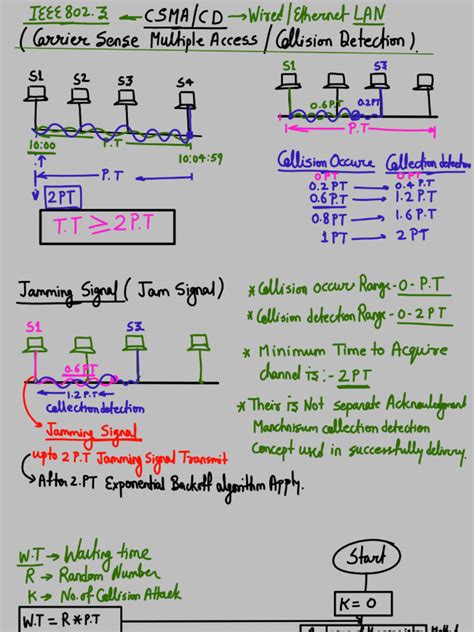 IEEE 802.3 ← CSMA/CD → Wired/Ethernet LAN
(Carrier Sense Multiple Access / Collision Detection)
S1 S2 S3 S4
P.T
10:00 10:04:59
P.T
2PT
T.T ≥ 2P.T
S1 S3
0.6P.T 0.2PT
P.T
Collision Occure Collection detection
0PT 0PT
0.2PT → 0.4 P.T
0.6P.T → 1.2 P.T
0.8PT → 1.6 P.T
1PT → 2PT
Jamming Signal (Jam Signal)
S1 S3
0.6PT
1.2 P.T
collection detection
Jamming Signal
upto 2 P.T Jamming Signal Transmit
After 2.PT Exponential Backoff algorithm Apply.
* Collision occur Range - 0 - P.T
* Collision detection Range - 0 - 2PT
* Minimum Time to Acquire
channel is :- 2PT
* Their is Not separate Acknowledgment
collection detection
Concept used in successfully delivery.
W.T → Waiting time
R → Random Number
K → No. of Collision Attack
W.T = R * P.T
Start
K = 0